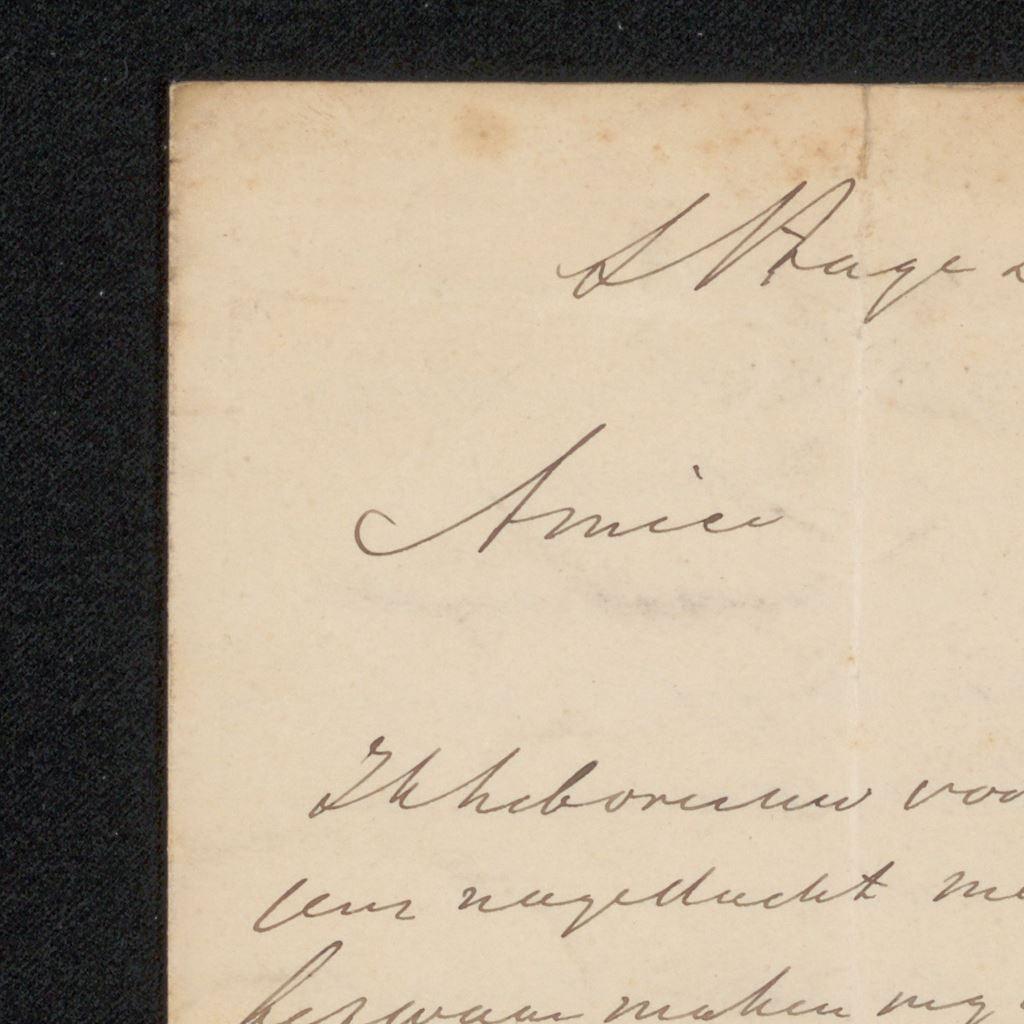 S Hage
Amice
Ik heb over uw voo
eens nagedacht me
bezwaar maken my